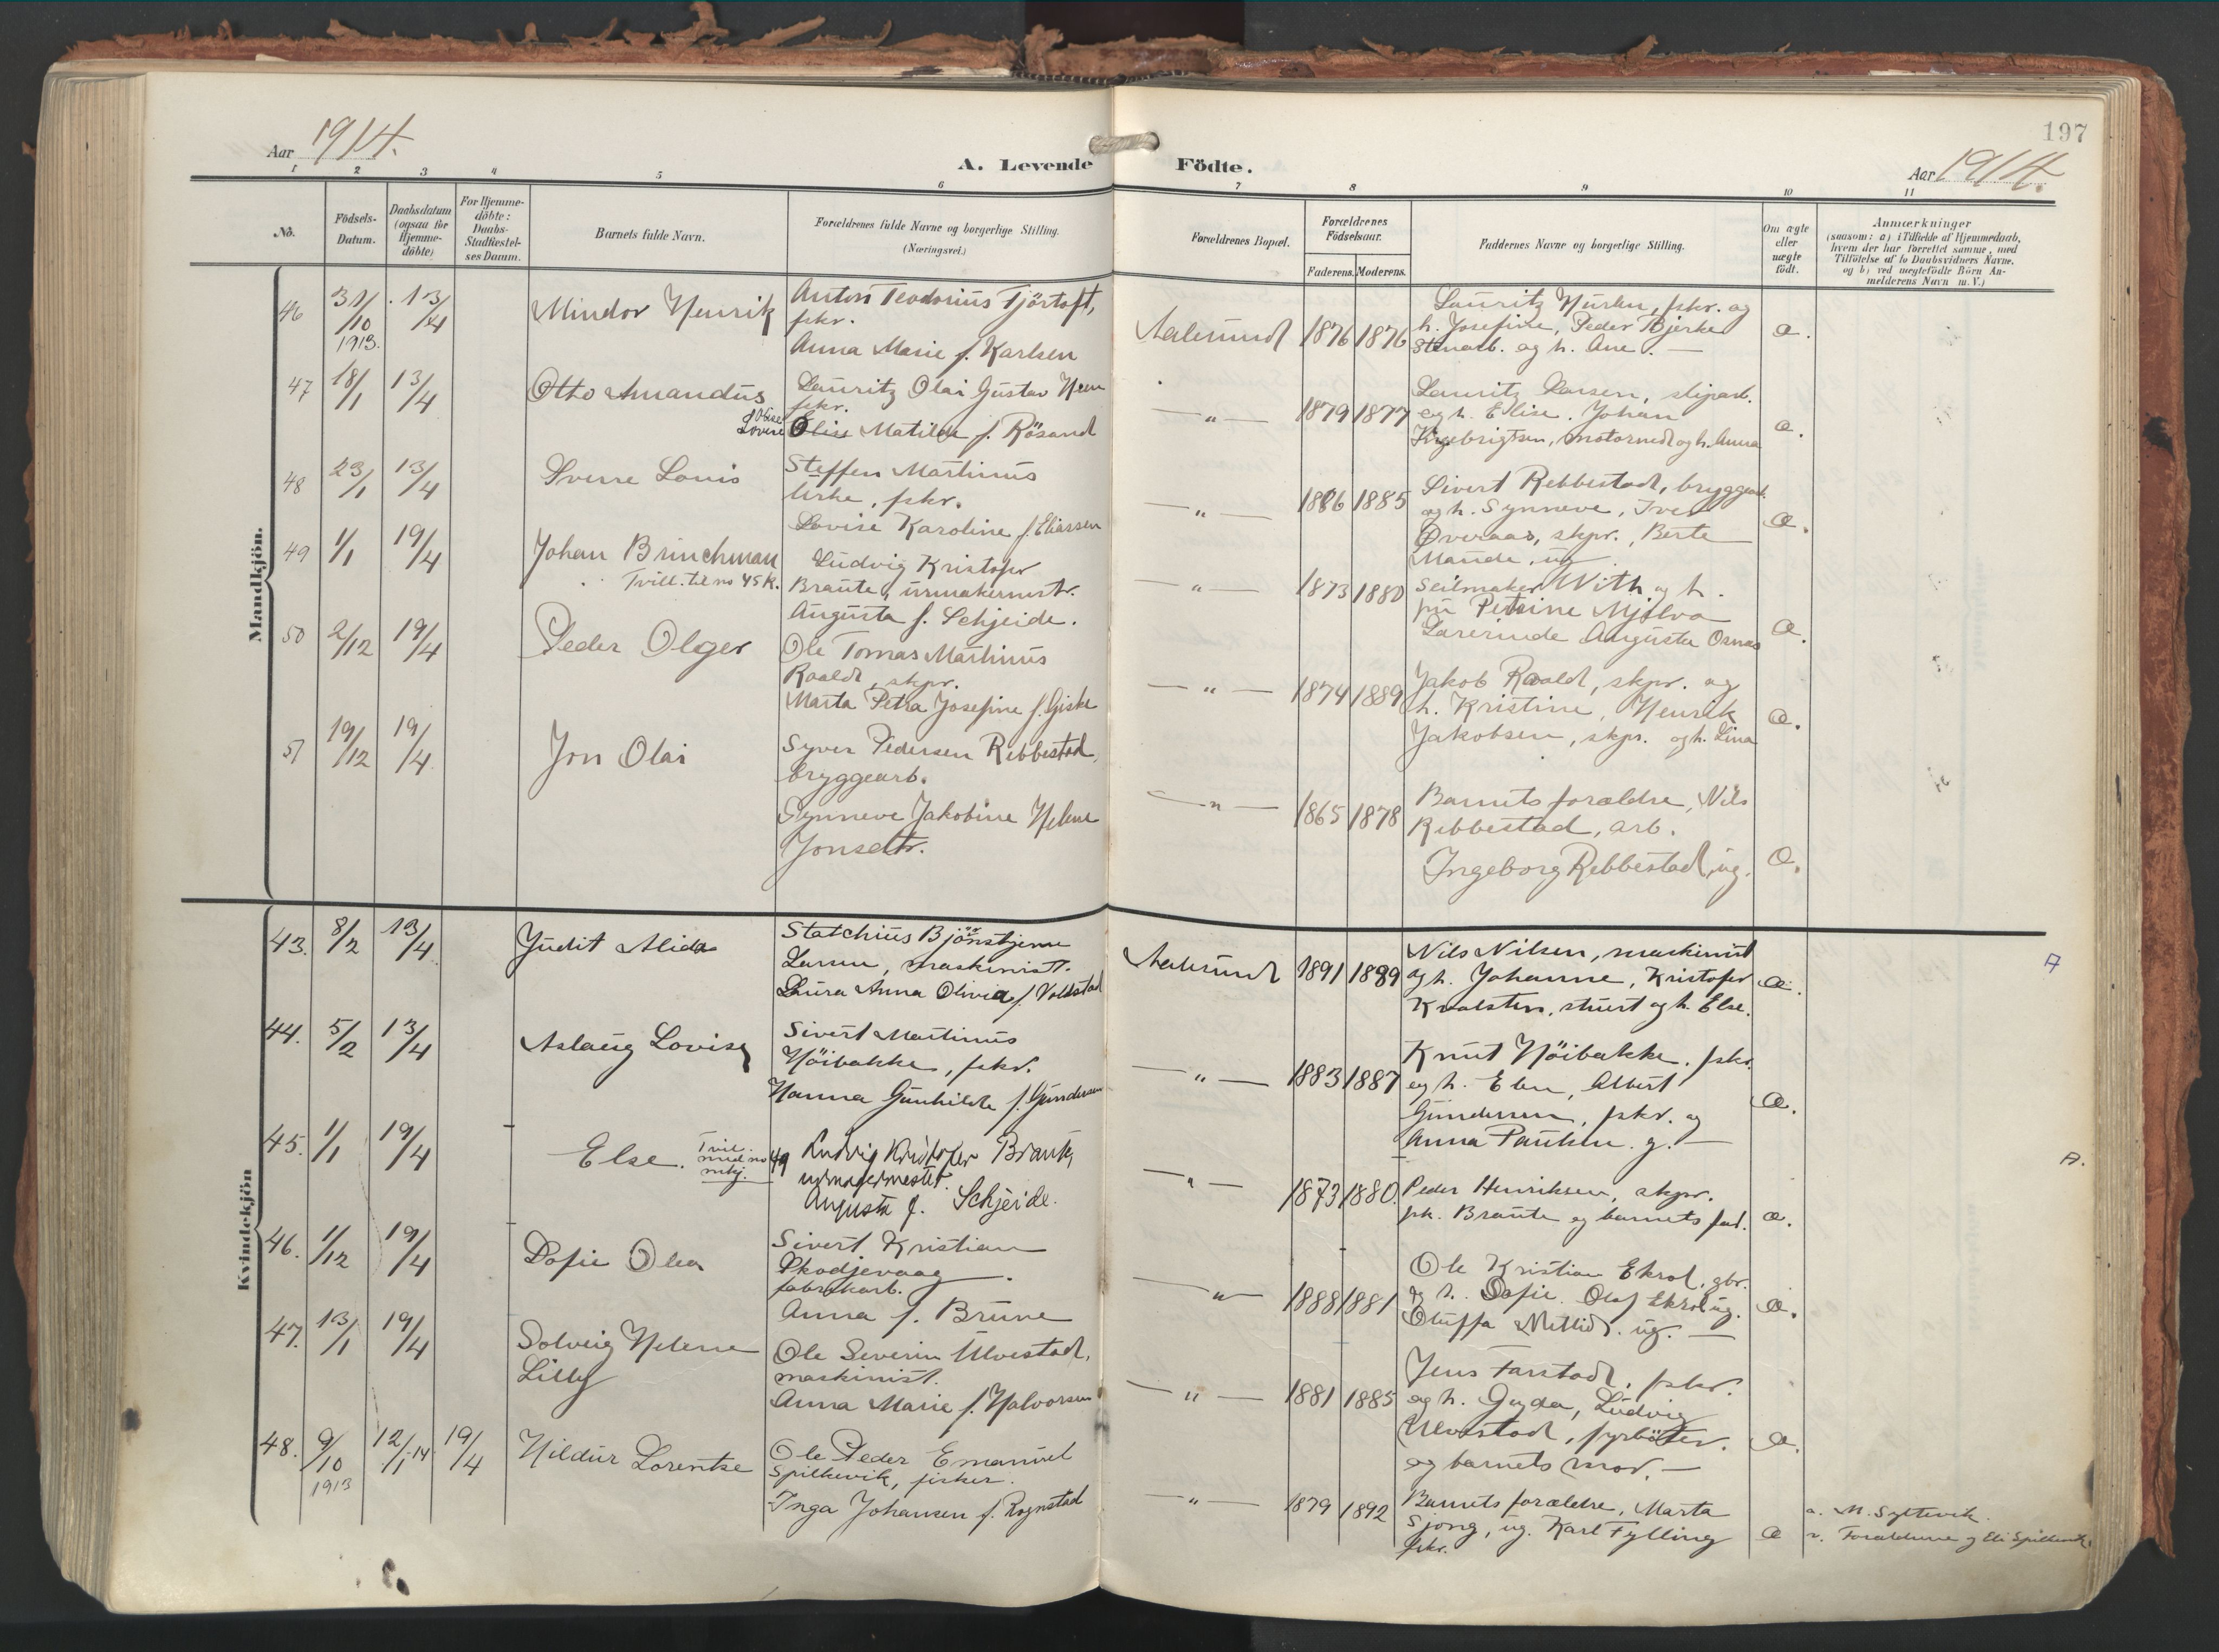 Aar 1914.
A. Levende
Födte.
Aar 1914.
197
1 2 3 4 5 6 7 8 9 10 11
No.
Födsels-
Datum.
Daabsdatum
(ogsaa for
Hjemme-
döbte)
For Hjemme-
döbte:
Daabs-
Stadfæstel-
ses Datum.
Barnets fulde Navn.
Forældrenes fulde Navne og borgerlige Stilling.
(Næringsvei.)
Forældrenes Bopæl.
Forældrenes
Födselsaar.
Faderens. Moderens.
Faddernes Navne og borgerlige Stilling.
Om ægte
eller
uægte
födt.
Anmærkninger
(saasom: a) i Tilfælde af Hjemmedaab,
hvem der har forrettet samme, med
Tilföielse af to Daabsvidners Navne,
og b) ved uægtefödte Börn An-
melderens Navn m. V.)
Mandkjön.
46 31/10 1913. 13/4
Mindor Henrik
Anton Teodorius Fjörtoft,
fskr.
Anna Marie f. Karlsen
Aalesund 1876 1876
fskr. og
h. Josefine, Peder Bjerke
og h. Ane. —
æ.
47 18/1 13/4
Otto Amandus
Lauritz Olai Gustav
fskr.
Lovise
Matilde f. Rösand
— " — 1879 1877
Lauritz Larsen,
og h. Elise. Johan
og h. Anna
æ.
48 23/1 13/4
Sverre Louis
Steffen Martinus
Urke, fskr.
Lovise Karoline f. Eliassen
— " — 1886 1885
Sivert Rebbestad, bryggearb.
og h. Synneve, Iver
Överaas, skpr., Berte
Mande, ug.
æ.
49 1/1 19/4
Johan Brinchman
Tvill. til no 45 K.
Ludvig Kristofer
Braute, urmakermstr.
Augusta f. Schjeide.
— " — 1873 1880
Seilmaker With og h.
Petrine Mjölva
Lærerinde Augusta Osnes
æ.
50 2/12 19/4
Peder Olger
Ole Tomas Martinus
Roald, skpr.
Marta Petra Josefine f. Giske
— " — 1874 1889
Jakob Roald, skpr. og
h. Kristine, Henrik
Jakobsen, skpr. og h. Lina
æ.
51 19/12 19/4
Jon Olai
Syver Pedersen Rebbestad,
bryggearb.
Synneve Jakobine Helene
Jonsdtr.
— " — 1865 1878
Barnets forældre, Nils
Rebbestad, arb.
Ingeborg Rebbestad, ug.
æ.
Kvindekjön
43. 8/2 13/4
Judit Alida
Statchius Björnstjerne
Larsen, maskinist.
Laura Anna Olivia f. Voldstad
Aalesund 1891 1889
Nils Nilsen, maskinist
og h. Johanne, Kristofer
Kvalsten, stuert og h. Else.
æ.
A
44. 5/2 13/4
Aslaug Lovise
Sivert Martinus
Höibakke, fskr.
Hanna Gunhilde f. Gundersen
— " — 1883 1887
Knut Höibakke, fskr.
og h. Elen, Albert
Gundersen, fskr. og
Anna Paulsen g. —
æ.
45. 1/1 19/4
Else. Tvil.
med no 49
mkj.
Ludvig Kristofer Braute,
urmagermester
Augusta f. Schjeide.
— " — 1873 1880.
Peder Henriksen, skpr.
frk. Braute og barnets far.
æ.
A.
46. 1/12 19/4
Dofie Olea
Sivert Kristian
Skodjevaag
fabrikarb.
Anna f. Brune
— " — 1888 1881
Ole Kristian Ekrol, gbr.
og h. Dofie. Olaf Ekrol ug.
ug. —
æ.
47. 13/1 19/4
Solveig Helene
Lilly
Ole Severin Ulvestad,
maskinist.
Anna Marie f. Halvorsen
— " — 1881 1885
Jens Farstad, fskr.
og h. Gyda, Ludvig
Ulvestad, fyrböter.
og barnets mor. —
æ.
48. 9/10 1913 12/1 -14 19/4
Hildur Lorentse
Ole Peder Emanuel
Spilkevik, fisker.
Inga Johansen f. Rognstad
— " — 1879 1892
Barnets forældre, Marta
Sjong, ug. Karl Fylling
fskr.
æ
a. M. Syltevik.
v. Forældrene og Eli Spilkevik.